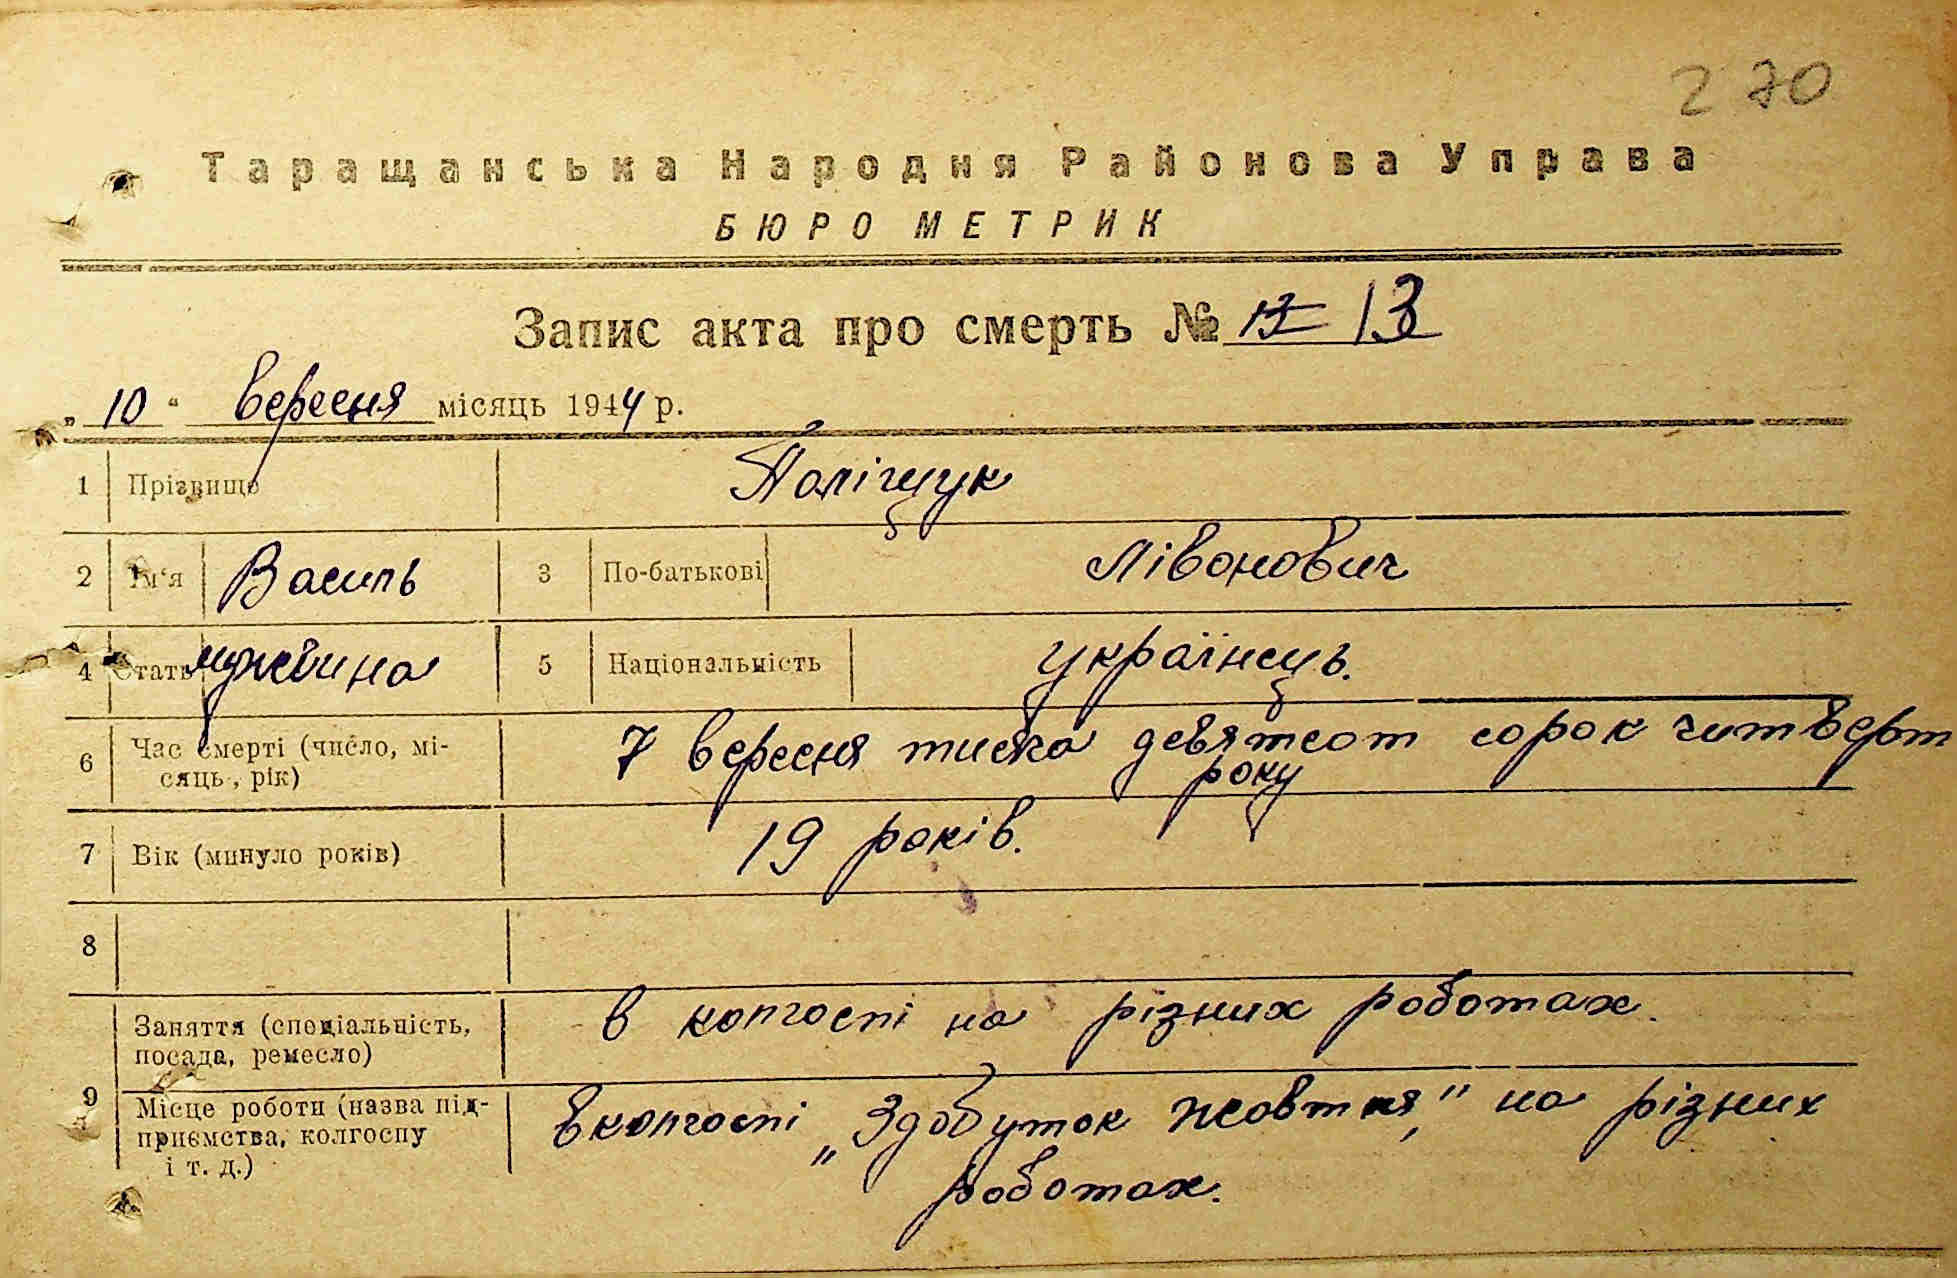 270
Таращанська Народня Районова Управа
БЮРО МЕТРИК
Запис акта про смерть № 13
„ 10 “ вересня місяць 1944 р.
1 Прізвище Поліщук
2 Ім'я Василь 3 По-батькові Лівонович
4 Стать мужчина 5 Національність українець.
6 Час смерті (число, мі-
сяць, рік) 7 вересня тисяча девятсот сорок читверт
року
7 Вік (минуло років) 19 років.
8
Заняття (спеціальність,
посада, ремесло) в колгоспі на різних роботах.
9 Місце роботи (назва під-
приємства, колгоспу
і т. д.) вколгоспі „Здобуток жовтня," на різних
роботах.